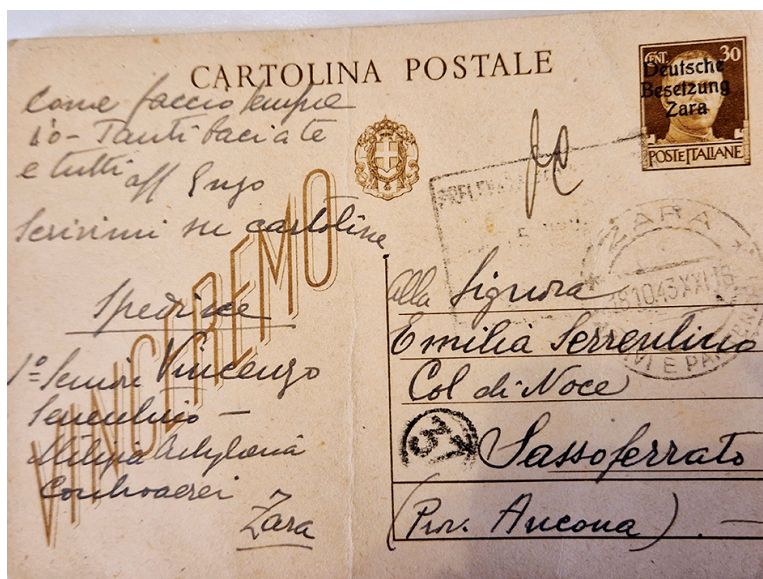 CARTOLINA POSTALE
CENT. 30
Deutsche
Besetzung
Zara
POSTE ITALIANE
Come faccio sempre
io - Tanti baci a te
e tutti
aff Enzo
Scrivimi su cartoline
VINCEREMO
Spedisce
1º Seniore Vincenzo
Serrentino -
Milizia Artiglieria
Controaerei
Zara
ZARA
18.10.43.XXI.16
alla Signora
Emilia Serrentino
Col di Noce
Sassoferrato
(Prov. Ancona). -